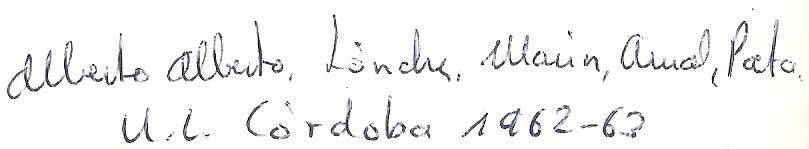 Alberto Alberto, Lóndre, Marin, Amal, Pata.
U.L. Córdoba 1962-63